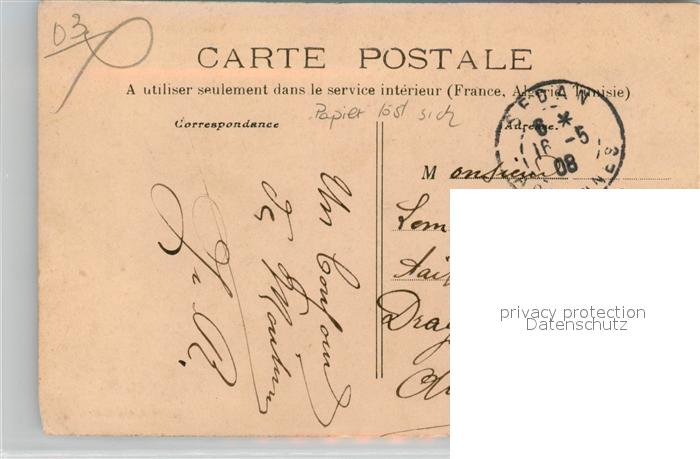 03
CARTE POSTALE
A utiliser seulement dans le service intérieur (France, Algérie, Tunisie)
Papier löst sich
Correspondance
Adresse.
SEDAN
6 *
16 -5
08
Monsieur
Lem
Drag
privacy protection
Datenschutz
Un bonjour
de Moulins